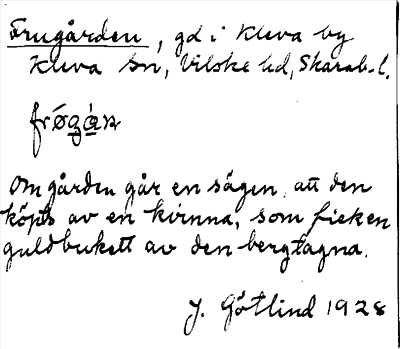 Frugården, gd i Kleva by
Kleva sn, Vilske hd, Skarab. l.
Om gården går en sägen, att den
köpts av en kvinna, som fick en
guldbukett av den bergtagna.
J. Götlind 1928